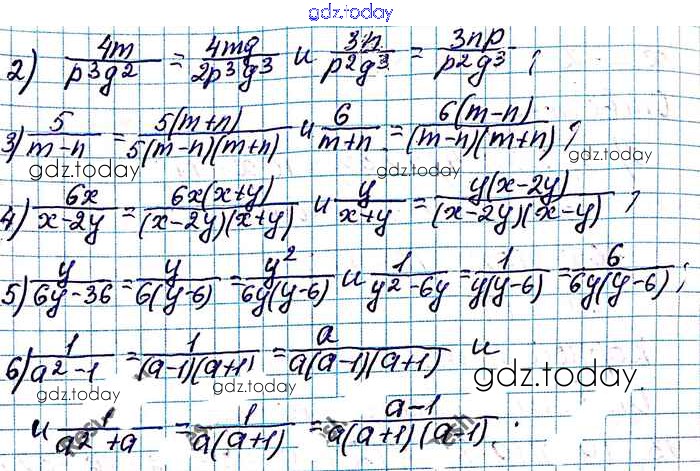 gdz.today
2) 4m/(p³g²) = 4mg/(2p³g³) и 3n/(p²g³) = 3np/(p²g³) ;
3) 5/(m-n) = 5(m+n)/(5(m-n)(m+n)) и 6/(m+n) = 6(m-n)/((m-n)(m+n)) ;
gdz.today gdz.today
4) 6x/(x-2y) = 6x(x+y)/((x-2y)(x+y)) и y/(x+y) = y(x-2y)/((x-2y)(x-y)) ;
5) y/(6y-36) = y/(6(y-6)) = y²/(6y(y-6)) и 1/(y²-6y) = 1/(y(y-6)) = 6/(6y(y-6)) ;
6) 1/(a²-1) = 1/((a-1)(a+1)) = a/(a(a-1)(a+1)) и
gdz.today gdz.today gdz.today
и 1/(a²+a) = 1/(a(a+1)) = (a-1)/(a(a+1)(a-1)) .